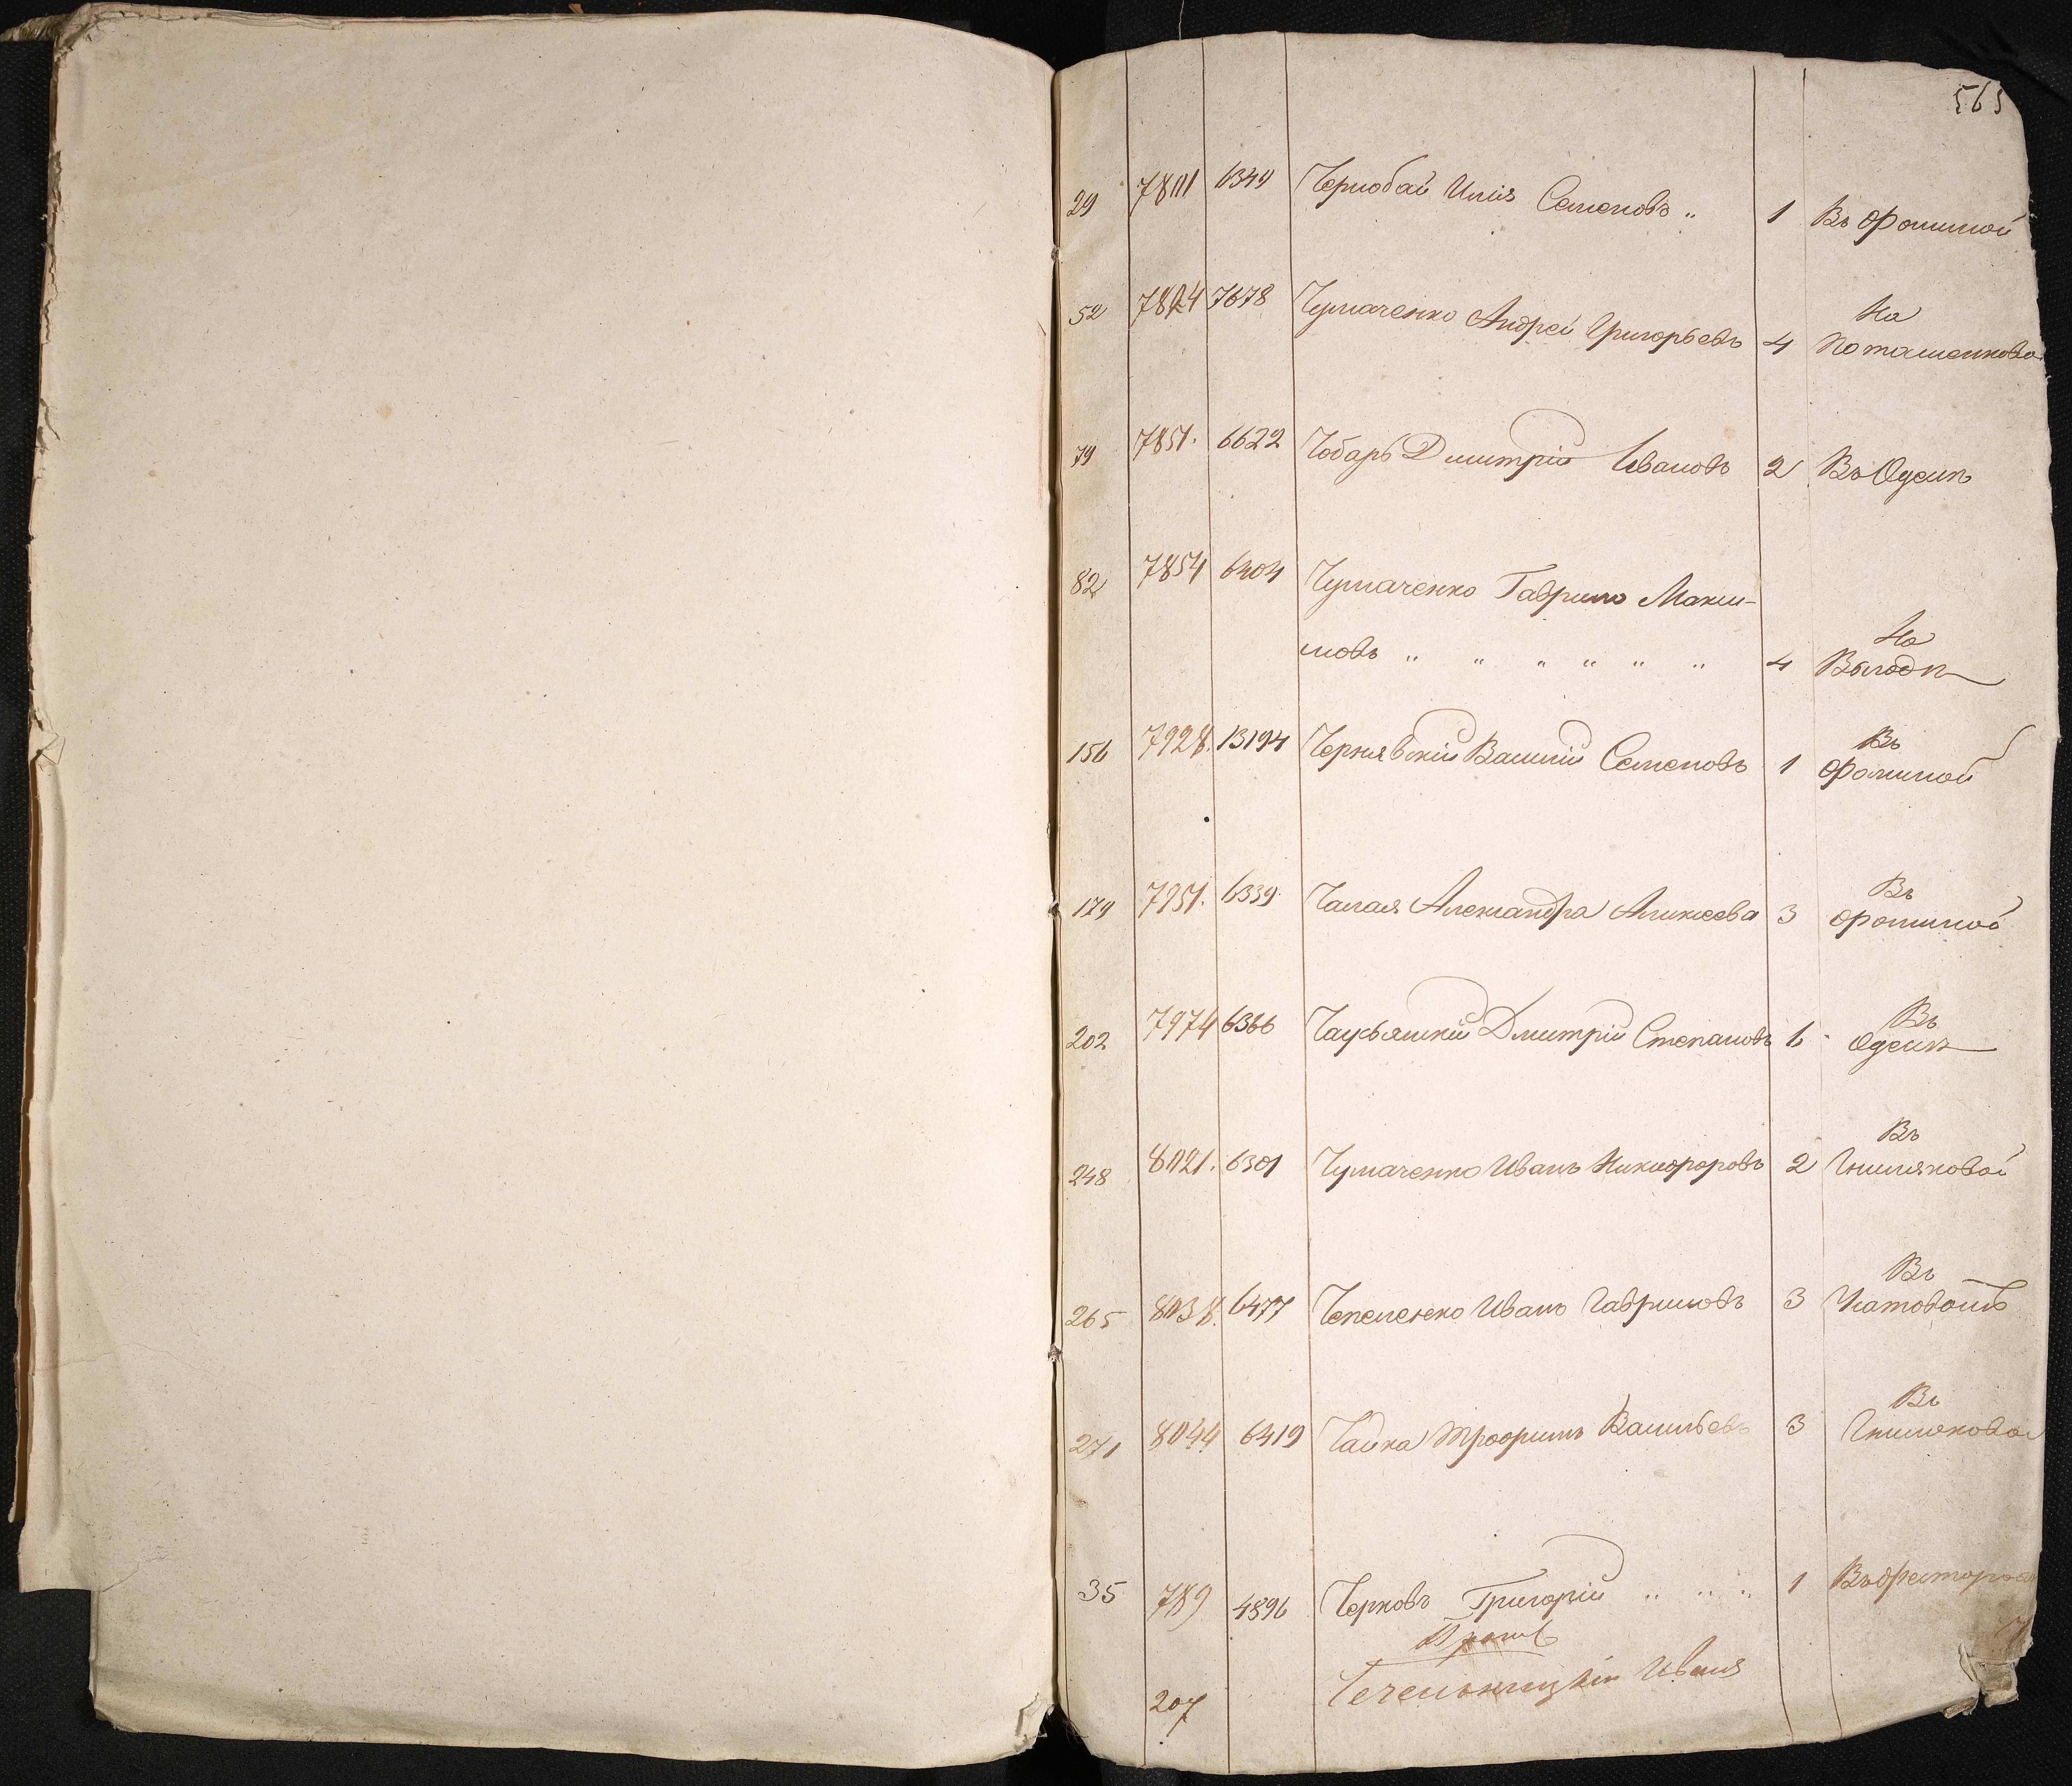 565
29 7801 6349 Чернобай Илія Семеновъ „ 1 Въ Фоминой
52 7824 7678 Чумаченко Андрей Григорьевъ 4 На Поташенкова
79 7851. 6622 Чобаръ Дмитрій Ивановъ 2 Въ Одесѣ
82 7854 6404 Чумаченко Гаврило Макси-
мовъ „ „ „ „ „ „ 4 На
156 7928. 13194 Чернявскій Василій Семеновъ 1 Въ Фоминой
179 7951. 6339 Чалая Александра Алексеева 3 Въ Фоминой
202 7974 6366 Дмитрій Степановъ 1 Въ Одесѣ
248 8021. 6301 Чумаченко Иванъ Никифоровъ 2 Въ Гниляковой
265 8038. 6477 Чепеленко Иванъ Гавриловъ 3 Въ
271 8044 6419 Чайка Трофимъ Васильевъ 3 Въ Гниляковой
35 789 4896 Черновъ Григорій „ „ „ 1
207 Чечельницкій Иванъ